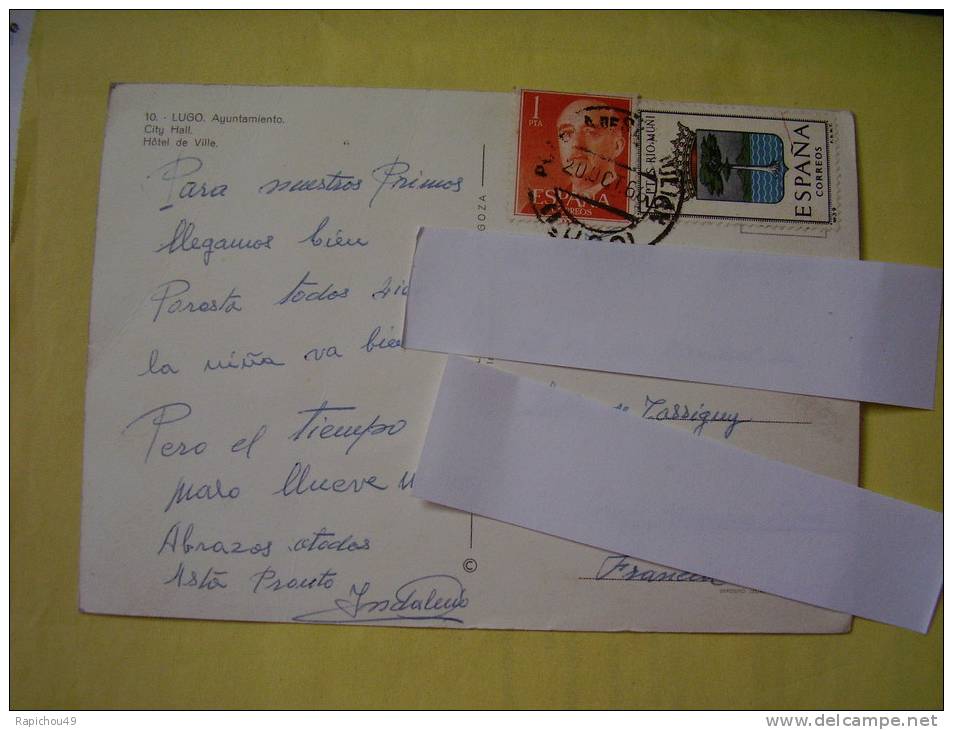 10. - LUGO. Ayuntamiento.
City Hall.
Hôtel de Ville.
Para nuestros Primos
llegamos bién
Paresta todos
la niña va bien
Pero el tiempo
malo llueve
Abrazos atodos
Asta Pronto
Indalecio
GOZA
©
1
PTA
ESPAÑA
CORREOS
20 OCT 6
RIO MUNI
ESPAÑA
CORREOS
Tassigny
Francia
Rapichou49
www.delcampe.net